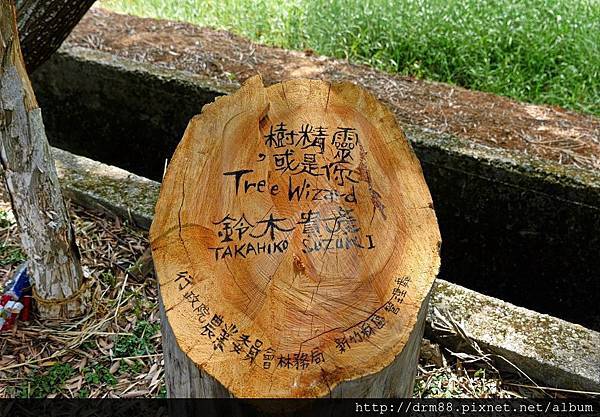 樹精靈
,或是你
Tree Wizard
鈴木貴彥
TAKAHIKO SUZUKI
行政院農業委員會林務局 新竹林區管理處
http://drm88.pixnet.net/album